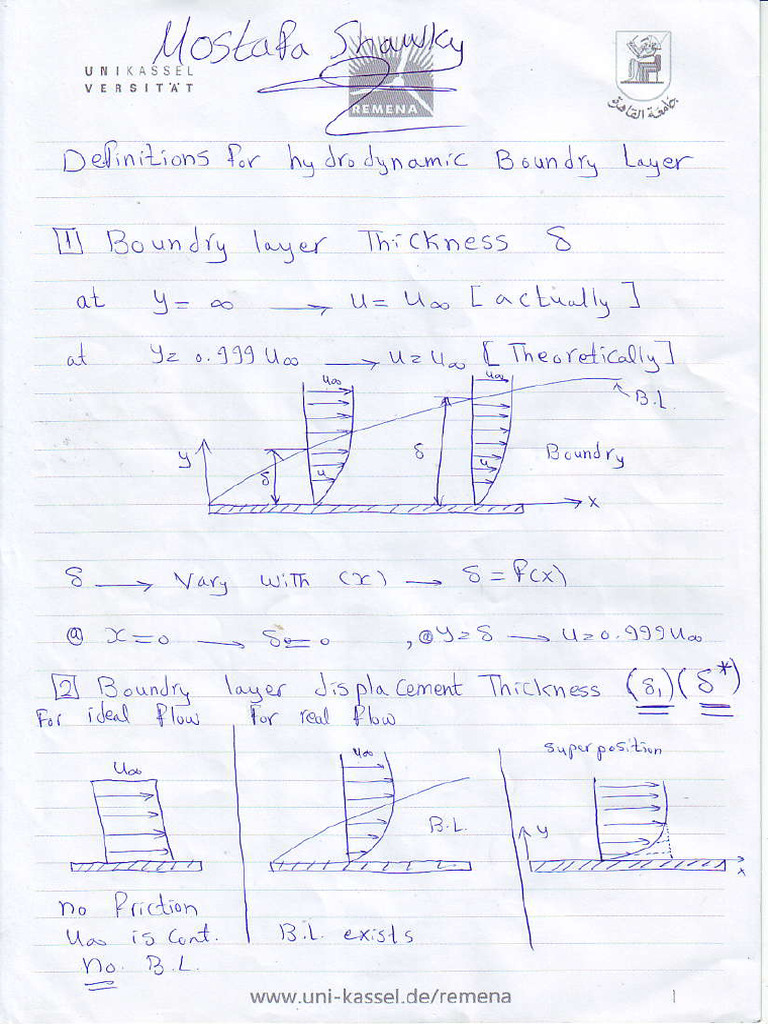 Mostafa Shawky
UNIKASSEL
VERSITÄT
REMENA
جامعة القاهرة
Definitions for hydrodynamic Boundry Layer
1 Boundry layer Thickness δ
at y = ∞ → u = u∞ [actually]
at y = 0.999 u∞ → u = u∞ [Theoretically]
u∞ u∞
B.L.
y δ u δ u Boundry
x
δ → Vary with (x) → δ = f(x)
@ x = 0 → δ = 0 , @ y = δ → u = 0.999 u∞
2 Boundry layer displacement Thickness (δ₁) (δ*)
For ideal flow For real flow
superposition
u∞ u∞
B.L. y
x
no friction
u∞ is Cont. B.L. exists
no B.L.
www.uni-kassel.de/remena 1